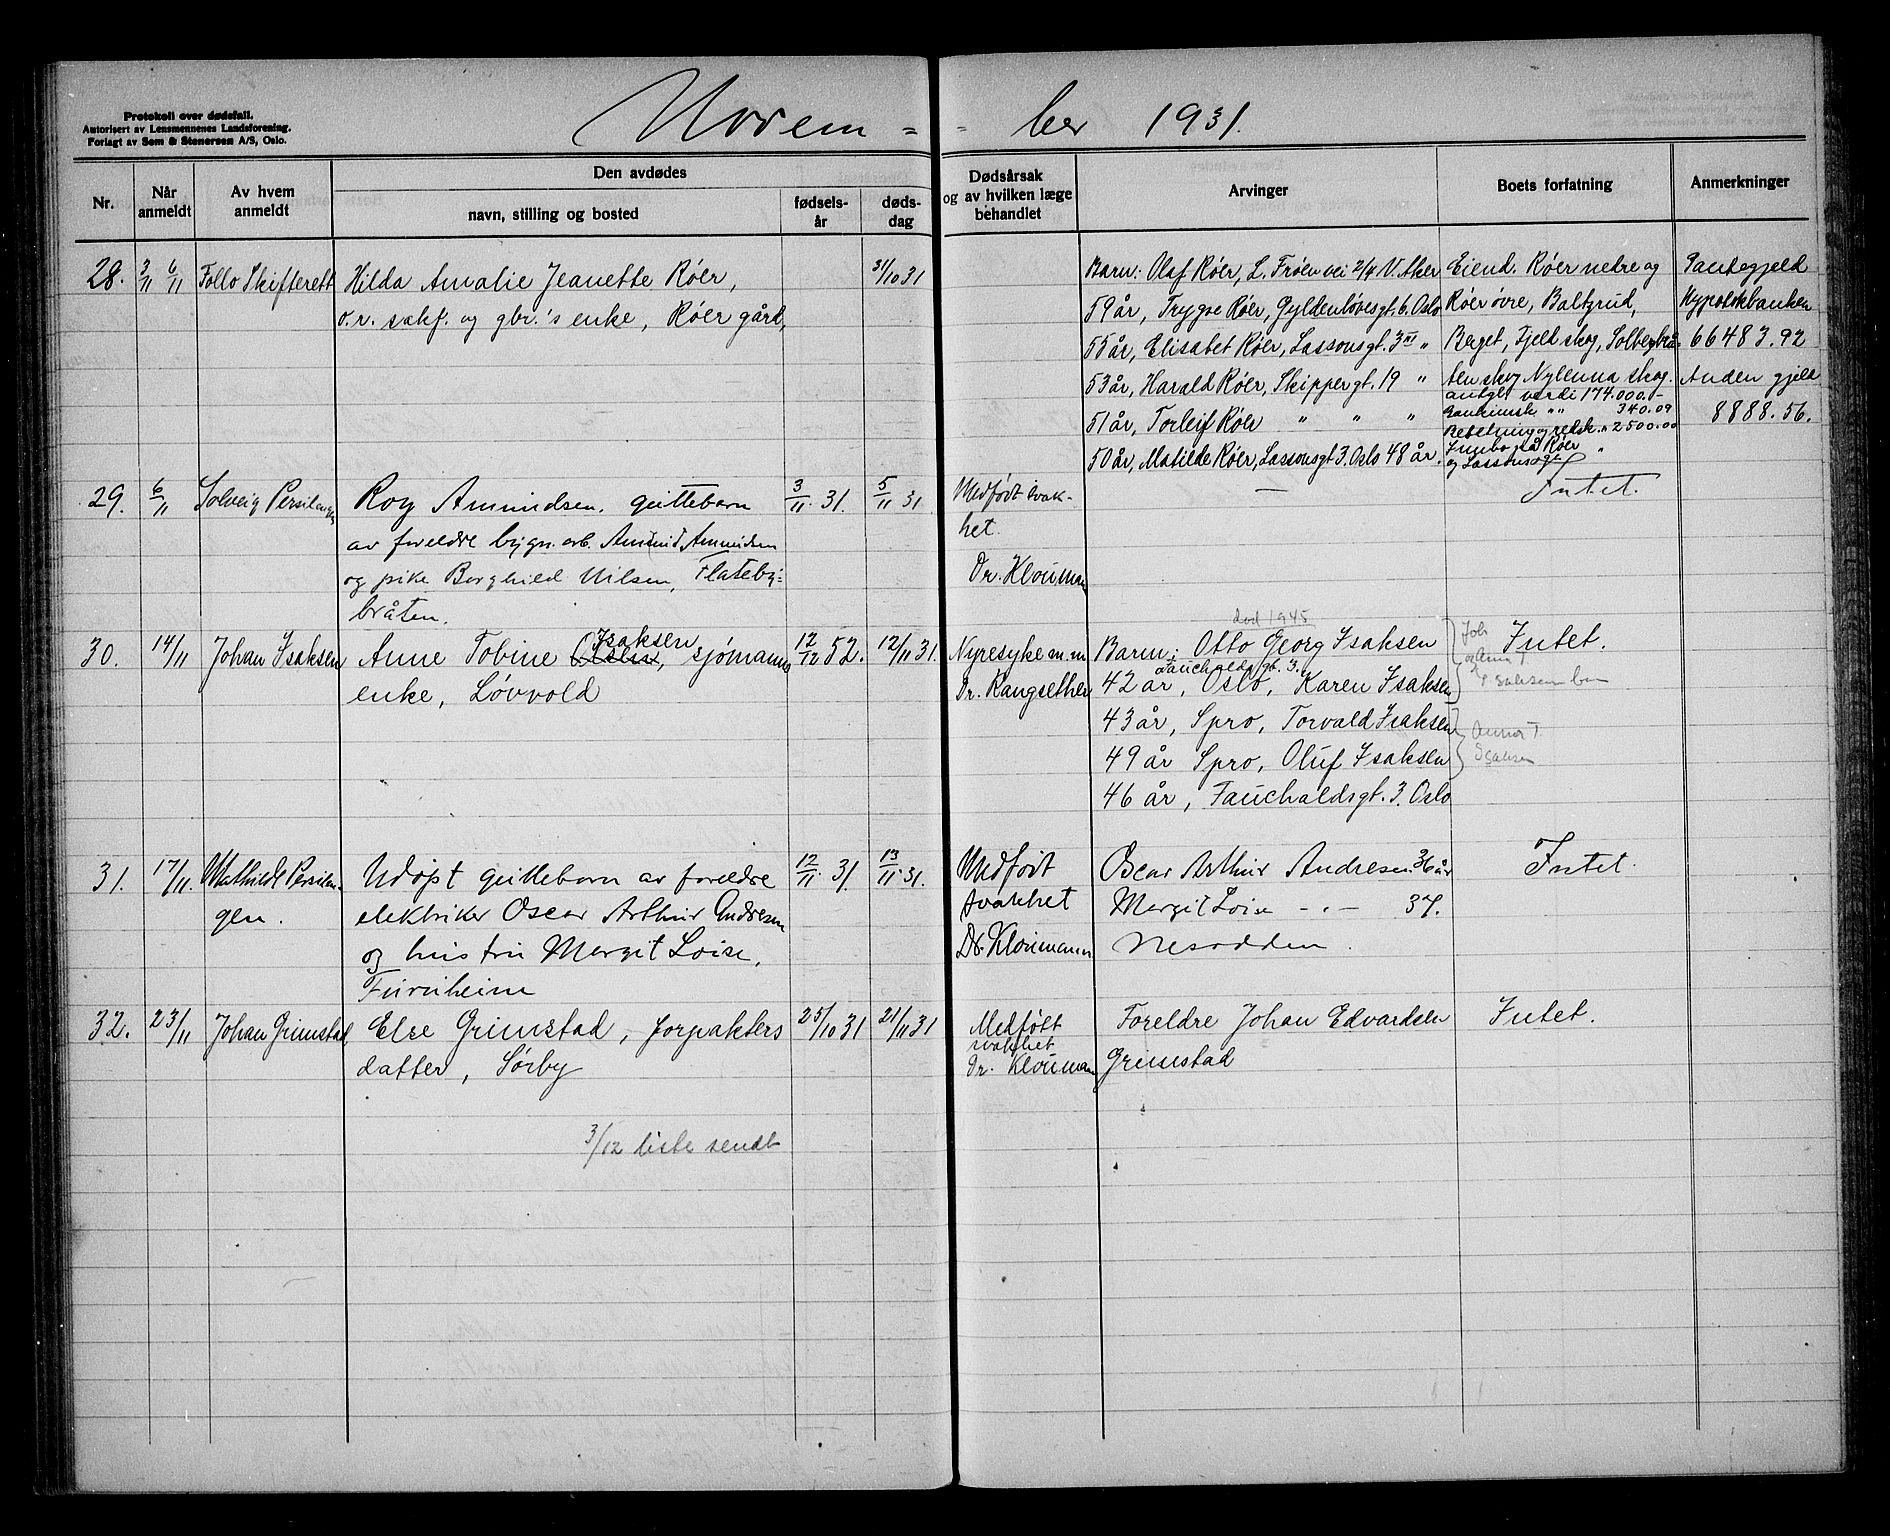 Novem - - ber 1931.
Protokoll over dødsfall.
Autorisert av Lensmennenes Landsforening.
Forlagt av Sem & Stenersen A/S, Oslo.
Nr.
Når anmeldt
Av hvem anmeldt
Den avdødes
navn, stilling og bosted
fødsels-år
døds-dag
Dødsårsak og av hvilken læge behandlet
Arvinger
Boets forfatning
Anmerkninger
28. 3/11 6/11 Follo Skifterett
Hilda Amalie Jeanette Røer,
o.r. sakf. og gbr.'s enke, Røer gård,
31/10 31
Barn: Olaf Røer, L. Frøen vei 2/4 V. Aker
59 år, Trygve Røer, Gyldenløvesgt. 6. Oslo
55 år, Elisabet Røer, Lassonsgt. 3 "
53 år, Harald Røer, Skippergt. 19 "
51 år, Torleif Røer " " "
50 år, Matilde Røer, Lassonsgt 3. Oslo 48 år.
Eiend. Røer nedre og
Røer øvre, Baltgrud,
Berget, Fjeld skog,
skog Nylenna skog.
antgt. verdi 174.000.-
Bankinnsk " " 340.09
Besetning og redsk. " 2500.00
Innbo på Røer "
og Lassonsgt
Pantegjeld
Hypotekbanken
66483.92
Anden gjeld
8888.56.
29. 6/11 Solveig Persilengen
Roy Amundsen, guttebarn
av foreldre bygn. arb. Amund Amundsen
og pike Borghild Nilsen, Flateby-
bråten.
3/11 31. 5/11 31
Medfødt svak-
het.
Dr. Klouman
—
Intet.
30. 14/11 Johan Isaksen
Isaksen
Anne Tobine Olsen, sjømanns
enke, Løvvold
12/12 52. 12/11 31.
Nyresyke m.m
Dr. Rangsethen
død 1945
Barn: Otto Georg Isaksen
Fauchaldsgt. 3.
42 år, Oslo, Karen Isaksen
43 år, Spro, Torvald Isaksen
49 år Spro, Oluf Isaksen
46 år, Fauchaldsgt. 3. Oslo
Joh
og Anna T
Isaksen
Anna T.
Isaksen
Intet.
31. 17/11. Mathilde Persilen-
gen.
Udøpt guttebarn av foreldre
elektriker Oscar Arthur Andresen
og hustru Margit Loise,
Furuheim
12/11. 31. 13/11. 31.
Medfødt
svakhet
Dr. Kloumann
Oscar Arthur Andresen 36 år
Margit Loise - " - 37.
Nesodden.
Intet.
32. 23/11 Johan Grimstad
Else Grimstad, forpakters
datter, Sørby
25/10 31 21/11 31
Medfødt
svakhet
Dr. Klouman
Foreldre Johan Edvardsen
Grimstad
Intet.
3/12 liste sendt